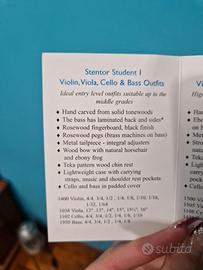 Stentor Student 1
Violin, Viola, Cello & Bass Outfits
Ideal entry level outfits suitable up to the
middle grades
♦ Hand carved from solid tonewoods
♦ The bass has laminated back and sides*
♦ Rosewood fingerboard, black finish
♦ Rosewood pegs (brass machines on bass)
♦ Metal tailpiece - integral adjusters
♦ Wood bow with natural horsehair
and ebony frog
♦ Teka pattern wood chin rest
♦ Lightweight case with carrying
straps, music and shoulder rest pockets
♦ Cello and bass in padded cover
1400 Violin, 4/4, 3/4, 1/2, 1/4, 1/8, 1/10, 1/16,
1/32, 1/64
1038 Viola, 12", 13", 14", 15",
1102 Cello, 4/4, 3/4, 1/2, 1/4, 1/8, 1/10
1950 Bass, 4/4, 3/4, 1/2, 1/4, 1/8
V
Hig
1500
1505
subito